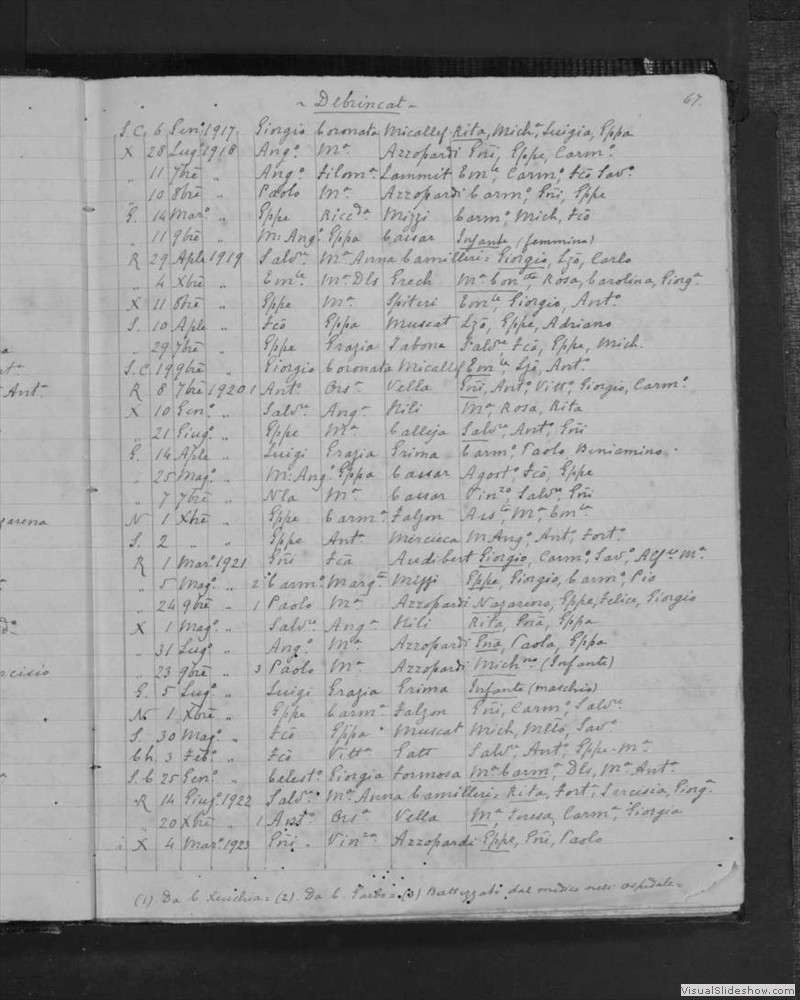 ~ Debrincat ~ 67.
S.C. 6 Gen.º 1917 Giorgio Coronata Micallef Rita, Mich.ª Luigia, Gppa
X 28 Lug.º 1918 Ang.º M.ª Azzopardi Gni, Gppe, Carm.º
„ 11 7bre „ Ang.º Filom.ª Zammit Em.le, Carm.º, Fco Sav.º
„ 10 8bre „ Paolo M.ª Azzopardi Carm.º, Gni, Gppe
G. 14 Mar.º „ Gppe Micc.la Mizzi Carm.º, Mich, Fco
„ 11 9bre „ M: Ang.º Gppa Cassar Infante (femmina)
R 29 Aple 1919 Salv.re M.ª Anna Camilleri = Giorgio, Lzo, Carlo
„ 4 Xbre „ Em.le M.ª Dls Grech M.ª Rosa, Carolina, Giorg.ª
X 11 8bre „ Gppe M.ª Spiteri Em.le, Giorgio, Ant.º
S. 10 Aple „ Fco Gppa Muscat Lzo, Gppe, Adriano
„ 29 7bre „ Gppe Grazia Tabone Salv.re, Fco, Gppe, Mich.
S.C. 19 9bre „ Giorgio Coronata Micallef Em.le, Lzo, Ant.º
R 8 7bre 1920 1 Ant.º Ors.ª Vella Gni, Ant.º, Vitt.º, Giorgio, Carm.º
X 10 Gen.º „ Salv.re Ang.ª Xili M.ª, Rosa, Rita
„ 21 Giug.º „ Gppe M.ª Calleja Salv.re, Ant.º, Gni
G. 14 Aple „ Luigi Grazia Grima Carm.º, Paolo, Beniamino.
„ 25 Mag.º „ M: Ang.º Gppa Cassar Agost.º, Fco, Gppe
„ 7 7bre „ Nla M.ª Cassar Vin.zo, Salv.re Gni
N 1 Xbre „ Gppe Carm.ª Falzon M.ª, Em.la
S. 2 „ „ Gppe Ant.ª Mercieca M. Ang.º, Ant.º, Fort.º
R 1 Mar.º 1921 Gni Fca Audibert Giorgio, Carm.º, Sav.º, Alf.so M.ª
„ 5 Mag.º „ 2 Carm.º Marg.ta Mizzi Gppe, Giorgio, Carm.º, Pio
„ 24 9bre „ 1 Paolo M.ª Azzopardi Nazareno, Gppe, Felice, Giorgio
X 1 Mag.º „ Salv.re Ang.ª Xili Rita, Gna, Gppa
„ 31 Lug.º „ Ang.º M.ª Azzopardi Gna, Paola, Gppa
„ 23 9bre „ 3 Paolo M.ª Azzopardi (Infante)
G. 5 Lug.º „ Luigi Grazia Grima Infante (maschio)
N 1 Xbre „ Gppe Carm.ª Falzon Gni, Carm.º, Salv.re
S 30 Mag.º „ Fco Gppa Muscat Mich, Sav.º
Ch. 3 Feb.º „ Fco Vitt.ª Gatt Salv.re, Ant.º, Gppe-M.ª
S.C. 25 Gen.º „ Celest.º Giorgia Formosa M.ª Carm.ª, Dls, M.ª Ant.ª
R 14 Giug.º 1922 Salv.re M.ª Anna Camilleri = Rita, Fort.ª, Giorg.ª
„ 20 Xbre „ 1 Ant.º Ors.ª Vella M.ª, Teresa, Carm.ª, Giorgia
X 4 Mar.º 1923 Gni Vin.za Azzopardi Gppe, Gni, Paolo
(1). Da C. Xeuchia = (2). Da C. = (3) Battezzati dal medico nell' ospedale =
a
Ant.ª
Ant.º
VisualSlideshow.com